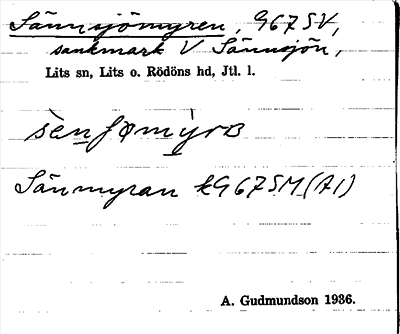 Sännsjömyren, 967 SV,
sankmark V Sännsjön,
Lits sn, Lits o. Rödöns hd, Jtl. l.
Sänmyran k967SM(A1)
A. Gudmundson 1936.